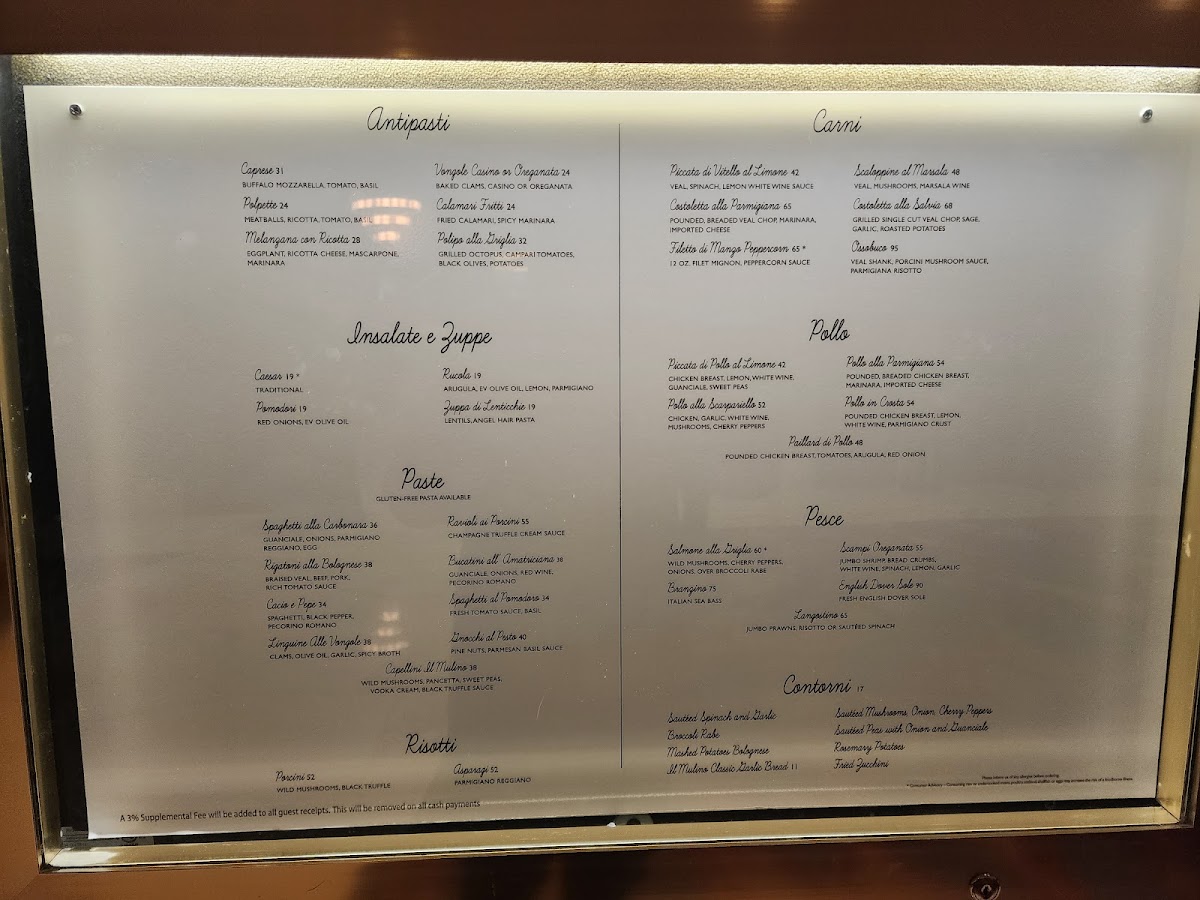 Antipasti
Caprese 31
BUFFALO MOZZARELLA, TOMATO, BASIL
Polpette 24
MEATBALLS, RICOTTA, TOMATO, BASIL
Melanzana con Ricotta 28
EGGPLANT, RICOTTA CHEESE, MASCARPONE,
MARINARA
Vongole Casino or Oreganata 24
BAKED CLAMS, CASINO OR OREGANATA
Calamari Fritti 24
FRIED CALAMARI, SPICY MARINARA
Polipo alla Griglia 32
GRILLED OCTOPUS, CAMPARI TOMATOES,
BLACK OLIVES, POTATOES
Insalate e Zuppe
Caesar 19 *
TRADITIONAL
Pomodori 19
RED ONIONS, EV OLIVE OIL
Rucola 19
ARUGULA, EV OLIVE OIL, LEMON, PARMIGIANO
Zuppa di Lenticchie 19
LENTILS, ANGEL HAIR PASTA
Paste
GLUTEN-FREE PASTA AVAILABLE
Spaghetti alla Carbonara 36
GUANCIALE, ONIONS, PARMIGIANO
REGGIANO, EGG
Rigatoni alla Bolognese 38
BRAISED VEAL, BEEF, PORK,
RICH TOMATO SAUCE
Cacio e Pepe 34
SPAGHETTI, BLACK PEPPER,
PECORINO ROMANO
Linguine Alle Vongole 38
CLAMS, OLIVE OIL, GARLIC, SPICY BROTH
Ravioli ai Porcini 55
CHAMPAGNE TRUFFLE CREAM SAUCE
Bucatini all' Amatriciana 38
GUANCIALE, ONIONS, RED WINE,
PECORINO ROMANO
Spaghetti al Pomodoro 34
FRESH TOMATO SAUCE, BASIL
Gnocchi al Pesto 40
PINE NUTS, PARMESAN BASIL SAUCE
Capellini Il Mulino 38
WILD MUSHROOMS, PANCETTA, SWEET PEAS,
VODKA CREAM, BLACK TRUFFLE SAUCE
Risotti
Porcini 52
WILD MUSHROOMS, BLACK TRUFFLE
Asparagi 52
PARMIGIANO REGGIANO
A 3% Supplemental Fee will be added to all guest receipts. This will be removed on all cash payments
Carni
Piccata di Vitello al Limone 42
VEAL, SPINACH, LEMON WHITE WINE SAUCE
Costoletta alla Parmigiana 65
POUNDED, BREADED VEAL CHOP, MARINARA,
IMPORTED CHEESE
Filetto di Manzo Peppercorn 65 *
12 OZ. FILET MIGNON, PEPPERCORN SAUCE
Scaloppine al Marsala 48
VEAL, MUSHROOMS, MARSALA WINE
Costoletta alla Salvia 68
GRILLED SINGLE CUT VEAL CHOP, SAGE,
GARLIC, ROASTED POTATOES
Ossobuco 95
VEAL SHANK, PORCINI MUSHROOM SAUCE,
PARMIGIANA RISOTTO
Pollo
Piccata di Pollo al Limone 42
CHICKEN BREAST, LEMON, WHITE WINE,
GUANCIALE, SWEET PEAS
Pollo alla Scarpariello 52
CHICKEN, GARLIC, WHITE WINE,
MUSHROOMS, CHERRY PEPPERS
Pollo alla Parmigiana 54
POUNDED, BREADED CHICKEN BREAST,
MARINARA, IMPORTED CHEESE
Pollo in Crosta 54
POUNDED CHICKEN BREAST, LEMON,
WHITE WINE, PARMIGIANO CRUST
Paillard di Pollo 48
POUNDED CHICKEN BREAST, TOMATOES, ARUGULA, RED ONION
Pesce
Salmone alla Griglia 60 *
WILD MUSHROOMS, CHERRY PEPPERS,
ONIONS, OVER BROCCOLI RABE
Branzino 75
ITALIAN SEA BASS
Scampi Oreganata 55
JUMBO SHRIMP, BREAD CRUMBS,
WHITE WINE, SPINACH, LEMON, GARLIC
English Dover Sole 90
FRESH ENGLISH DOVER SOLE
Langostino 65
JUMBO PRAWNS, RISOTTO OR SAUTÉED SPINACH
Contorni 17
Sautéed Spinach and Garlic
Broccoli Rabe
Mashed Potatoes Bolognese
Il Mulino Classic Garlic Bread 11
Sautéed Mushrooms, Onion, Cherry Peppers
Sautéed Peas with Onion and Guanciale
Rosemary Potatoes
Fried Zucchini
Please inform us of any allergies before ordering.